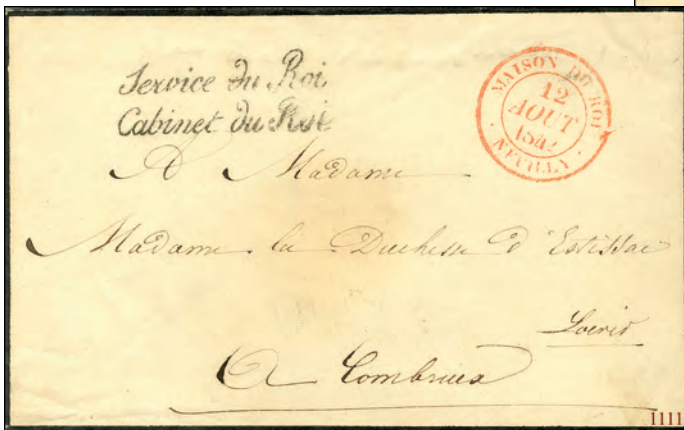 Service du Roi
Cabinet du Roi
MAISON DU ROI
12
AOUT
1842
NEUILLY
A Madame
Madame la Duchesse d'Estissac
Loiret
A Combreux
1111